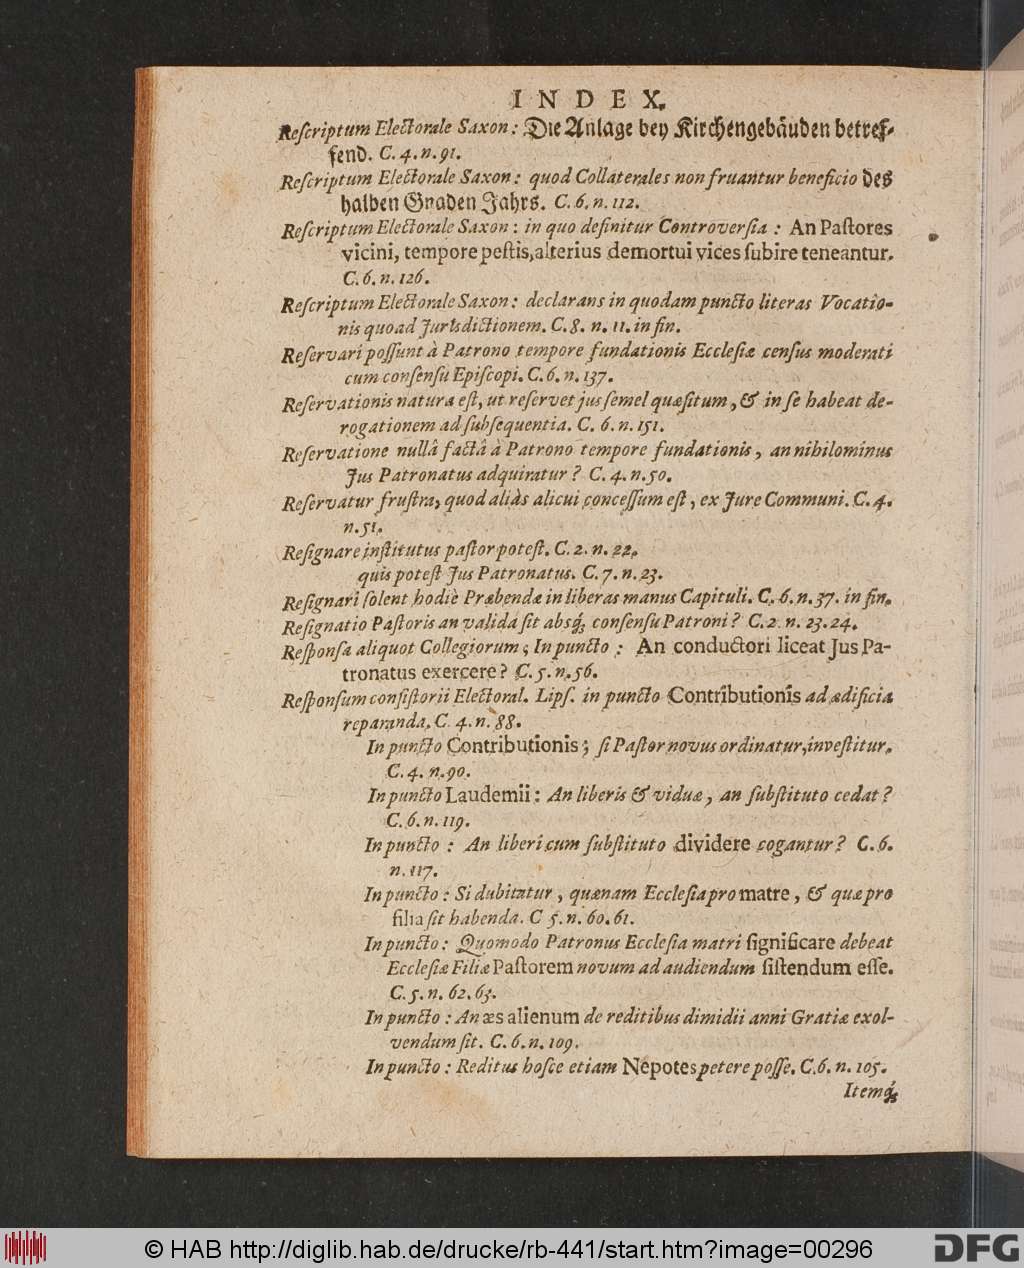 INDEX.
Reſcriptum Electorale Saxon: Die Anlage bey Kirchengebäuden betref-
fend. C. 4. n. 91.
Reſcriptum Electorale Saxon: quod Collaterales non fruantur beneficio des
halben Gnaden Jahrs. C. 6. n. 112.
Reſcriptum Electorale Saxon: in quo definitur Controverſia: An Paſtores
vicini, tempore peſtis, alterius demortui vices ſubire teneantur.
C. 6. n. 126.
Reſcriptum Electorale Saxon: declarans in quodam puncto literas Vocatio-
nis quoad Jurisdictionem. C. 8. n. 11. in fin.
Reſervari poſſunt à Patrono tempore fundationis Eccleſiæ cenſus moderati
cum conſenſu Epiſcopi. C. 6. n. 137.
Reſervationis natura eſt, ut reſervet jus ſemel quæſitum, & in ſe habeat de-
rogationem ad ſubſequentia. C. 6. n. 151.
Reſervatione nullâ factâ à Patrono tempore fundationis, an nihilominus
Jus Patronatus adquiratur? C. 4. n. 50.
Reſervatur fruſtra, quod aliàs alicui conceſſum eſt, ex Jure Communi. C. 4.
n. 51.
Reſignare inſtitutus paſtor poteſt. C. 2. n. 22.
quis poteſt Jus Patronatus. C. 7. n. 23.
Reſignari ſolent hodiè Præbendæ in liberas manus Capituli. C. 6. n. 37. in fin.
Reſignatio Paſtoris an valida ſit absq; conſenſu Patroni? C. 2. n. 23. 24.
Reſponſa aliquot Collegiorum; In puncto: An conductori liceat Jus Pa-
tronatus exercere? C. 5. n. 56.
Reſponſum conſiſtorii Electoral. Lipſ. in puncto Contributionis ad ædificia
reparanda. C. 4. n. 88.
In puncto Contributionis; ſi Paſtor novus ordinatur, inveſtitur.
C. 4. n. 90.
In puncto Laudemii: An liberis & viduæ, an ſubſtituto cedat?
C. 6. n. 119.
In puncto: An liberi cum ſubſtituto dividere cogantur? C. 6.
n. 117.
In puncto: Si dubitatur, quænam Eccleſia pro matre, & quæ pro
filia ſit habenda. C 5. n. 60. 61.
In puncto: Quomodo Patronus Eccleſia matri ſignificare debeat
Eccleſiæ Filiæ Paſtorem novum ad audiendum ſiſtendum eſſe.
C. 5. n. 62. 63.
In puncto: An æs alienum de reditibus dimidii anni Gratiæ exol-
vendum ſit. C. 6. n. 109.
In puncto: Reditus hoſce etiam Nepotes petere poſſe. C. 6. n. 105.
Itemq;
© HAB http://diglib.hab.de/drucke/rb-441/start.htm?image=00296
DFG